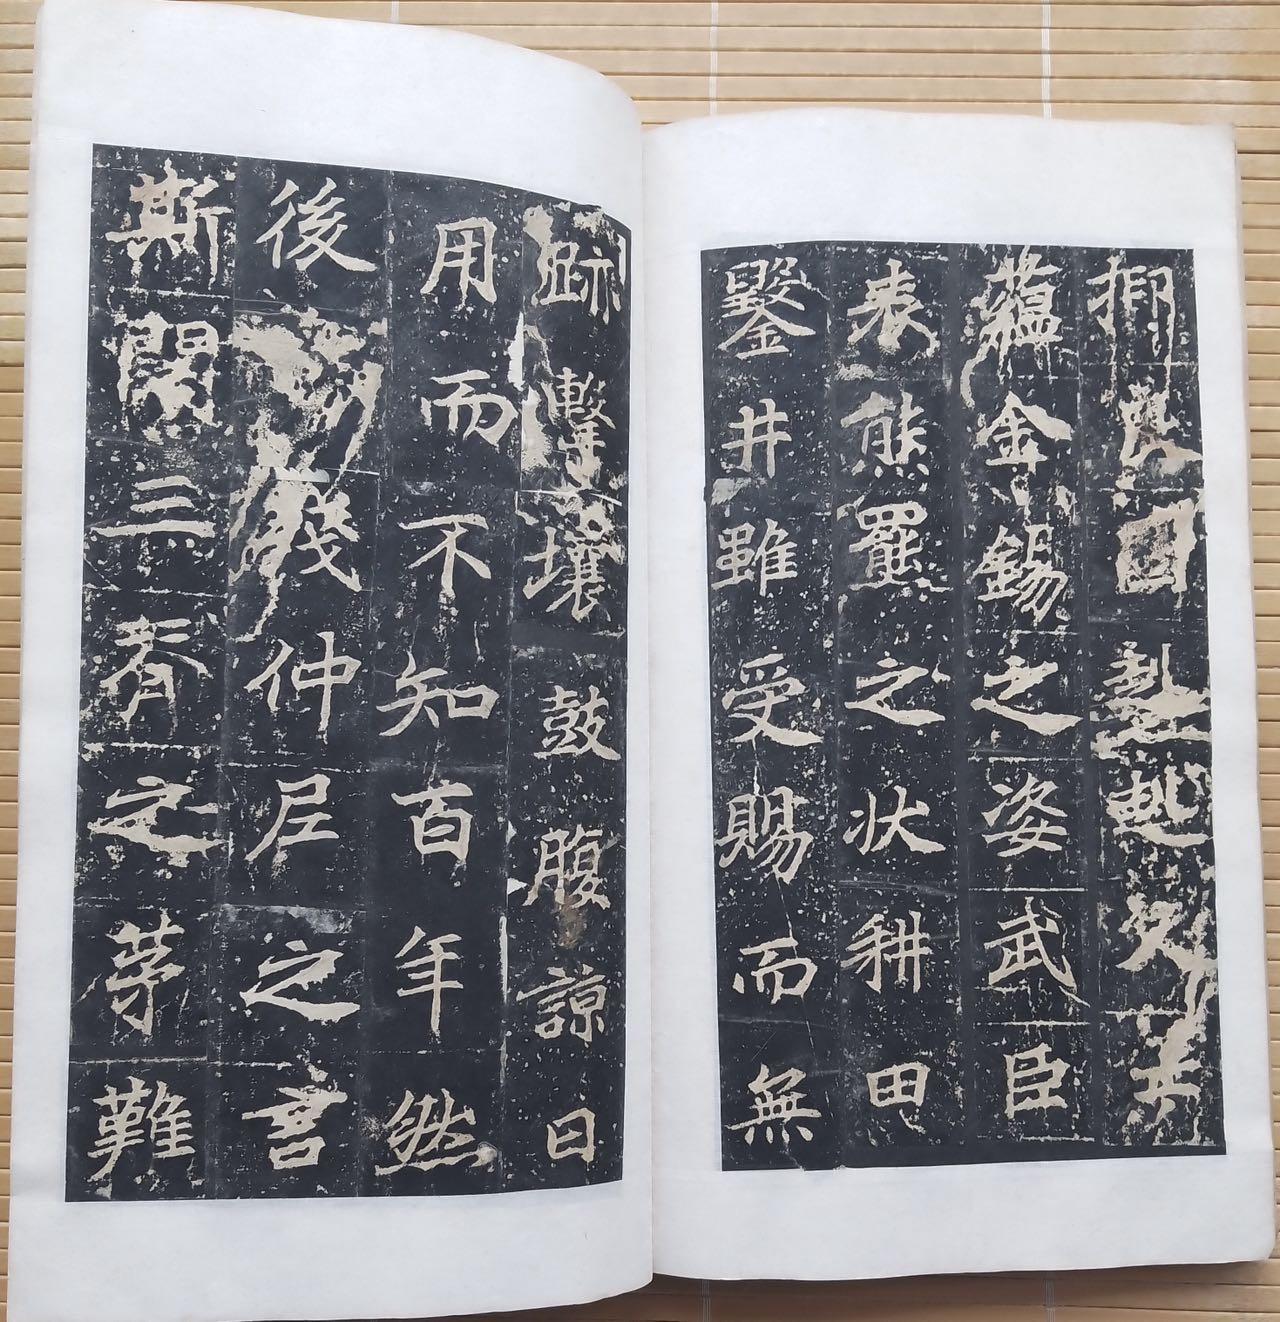 因起文
蘊金錫之姿武臣
表熊羆之状耕田
鑿井雖受賜而無
跡擊壤鼓腹諒日
用而不知百年然
後殘仲尼之言
斯闕三脊之茅難